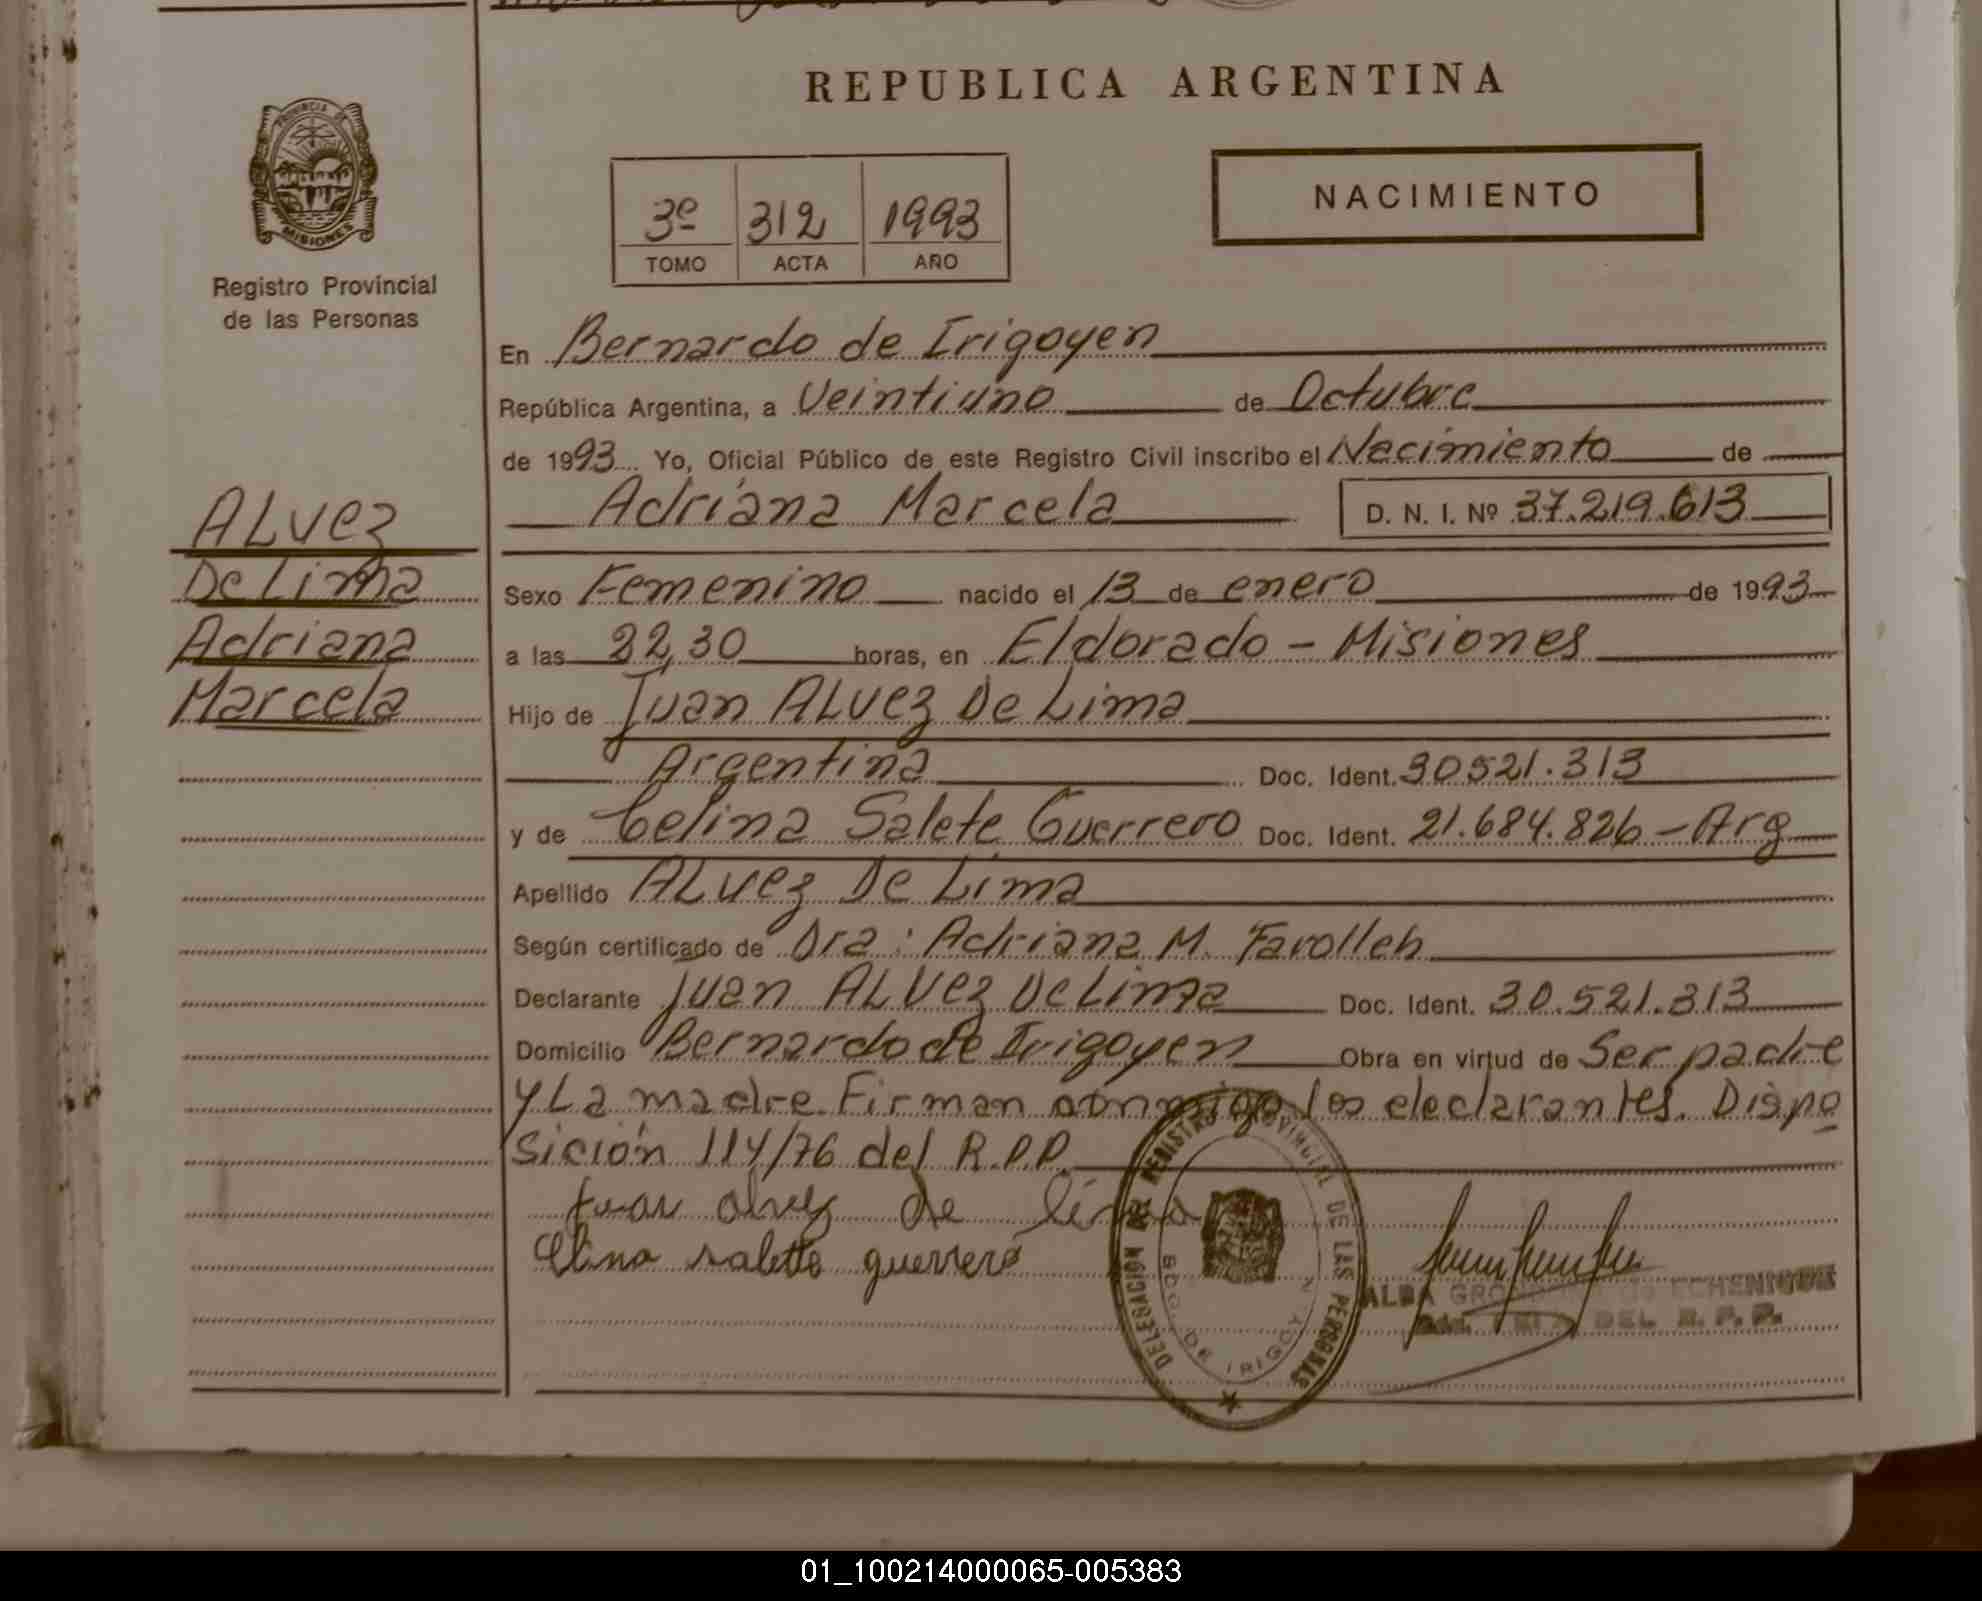 REPUBLICA ARGENTINA
PROVINCIA DE
MISIONES
Registro Provincial
de las Personas
3º 312 1993
TOMO ACTA AÑO
NACIMIENTO
En Bernardo de Irigoyen
República Argentina, a Veintiuno de Octubre
de 1993 Yo, Oficial Público de este Registro Civil inscribo el Nacimiento de
Adriana Marcela D. N. I. Nº 37.219.613
ALvez
De Lima
Adriana
Marcela
Sexo Femenino nacido el 13 de enero de 1993
a las 22,30 horas, en Eldorado - Misiones
Hijo de Juan ALvez De Lima
Argentina Doc. Ident. 30521.313
y de Celina Salete Guerrero Doc. Ident. 21.684.826 - Arg
Apellido ALvez De Lima
Según certificado de Dra: Adriana M.
Declarante Juan ALvez De Lima Doc. Ident. 30.521.313
Domicilio Bernardo de Irigoyen Obra en virtud de Ser padre
y La madre. Firman conmigo los declarantes. Dispo
sición 114/76 del R.P.P.
Juan alvez de lima
salette guerrero
DELEGACION DEL REGISTRO PROVINCIAL DE LAS PERSONAS
BDO. DE IRIGOYEN
ALBA de ECHENIQUE
DEL R. P. P.
01_100214000065-005383